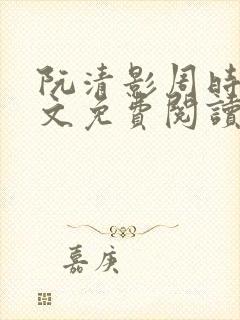 阮清影周时
文免費閱讀
嘉庚